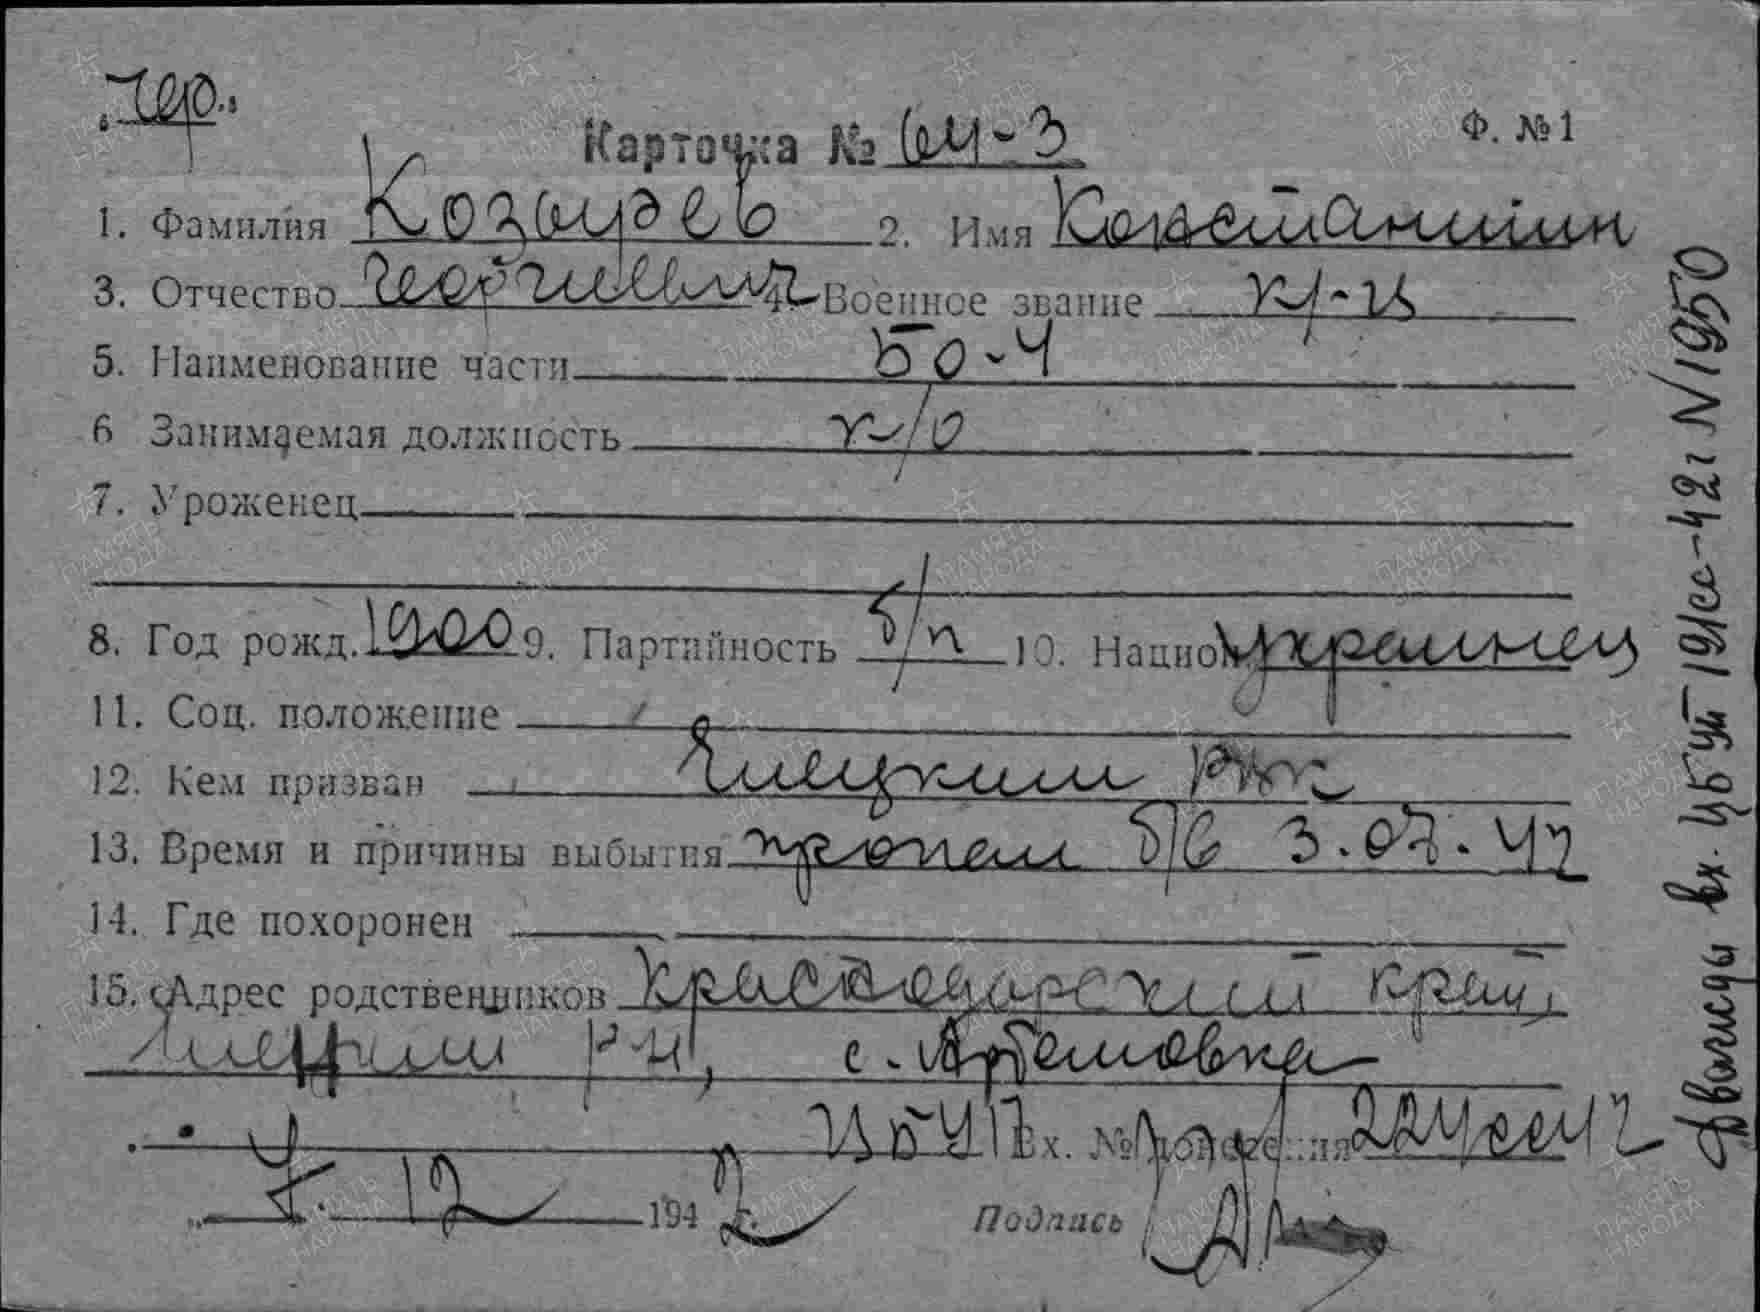 Чер.
Карточка № 64-3 Ф. №1
1. Фамилия Козырев 2. Имя Константин
3. Отчество Георгиевич 4. Военное звание кр-ц
5. Наименование части БО-Ч
6 Занимаемая должность к/о
7. Уроженец
8. Год рожд. 1900 9. Партийность б/п 10. Национ. украинец
11. Соц. положение
12. Кем призван РВК
13. Время и причины выбытия пропал б/в 3.07.42
14. Где похоронен
15. Адрес родственников Краснодарский край,
р-н, с. Артемовка
ЦБУП Вх. № донесения 224сс42
12 1942 Подпись
Дважды вх. ЦБУП 191сс-42г N 1950